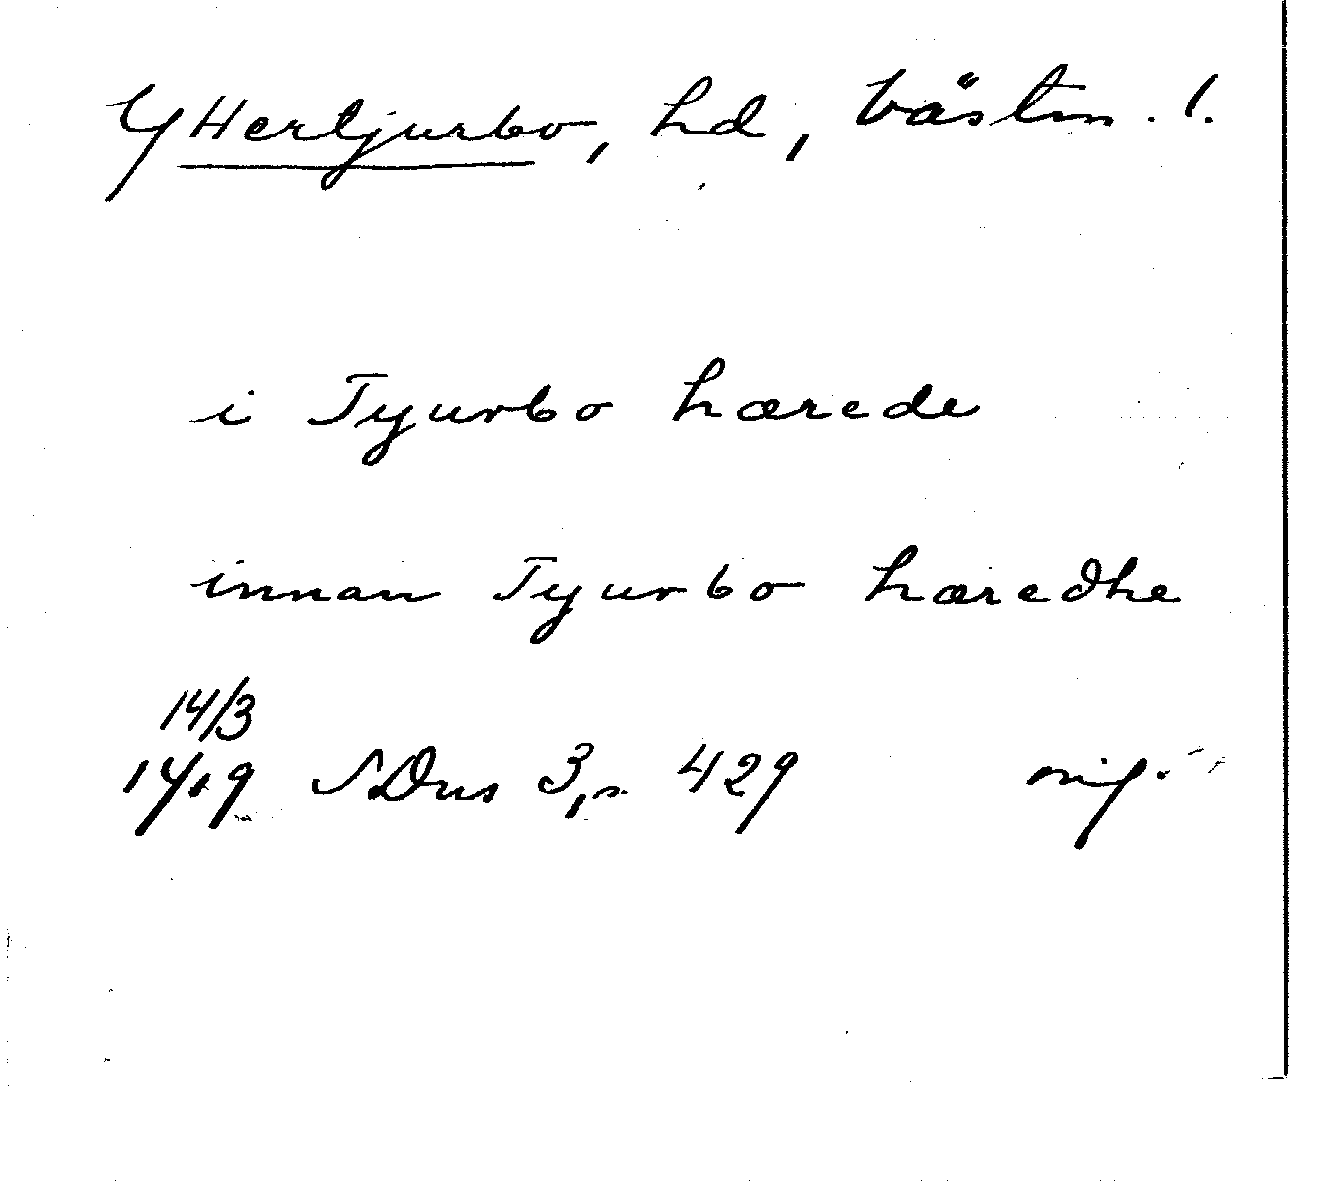 Yttertjurbo, hd, Västm. l.
i Tyurbo hærede
innan Tyurbo hæredhe
14/3
1419 SDns 3, s. 429 orig.